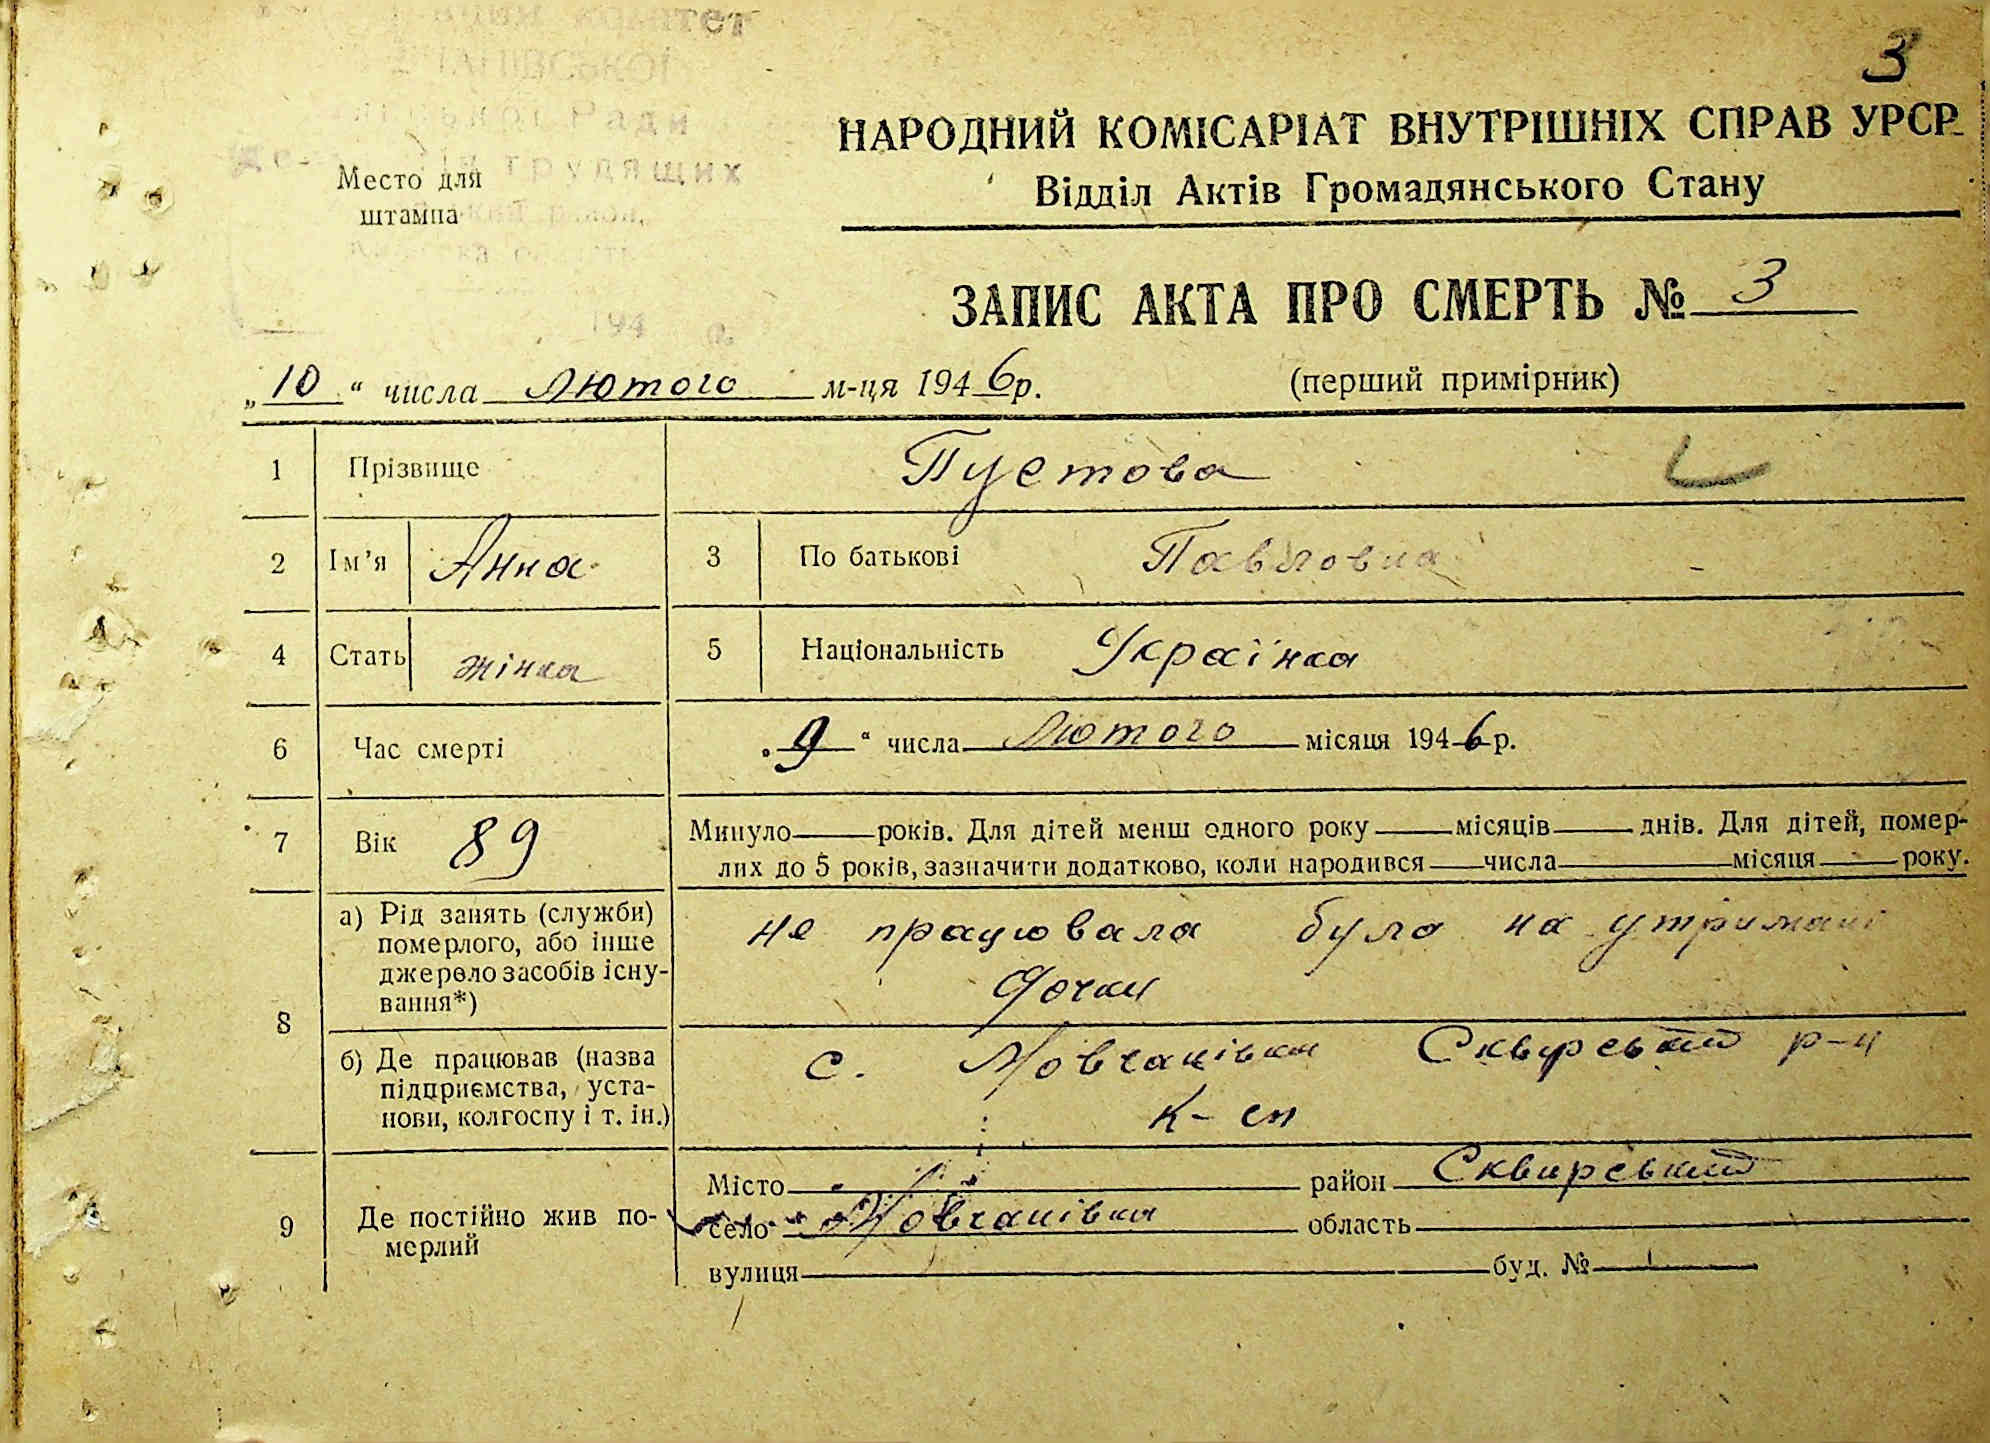 3
комітет
Ради
трудящих
Место для
штампа
194 р.
НАРОДНИЙ КОМІСАРІАТ ВНУТРІШНІХ СПРАВ УРСР
Відділ Актів Громадянського Стану
ЗАПИС АКТА ПРО СМЕРТЬ № 3
„10“ числа Лютого м-ця 1946р.
(перший примірник)
1 Прізвище Пустова
2 Ім'я Анна 3 По батькові Павловна
4 Стать жінка 5 Національність Українка
6 Час смерті „9“ числа Лютого місяця 1946р.
7 Вік 89 Минуло ___ років. Для дітей менш одного року ___ місяців ___ днів. Для дітей, помер-
лих до 5 років, зазначити додатково, коли народився ___ числа ___ місяця ___ року.
8
а) Рід занять (служби)
померлого, або інше
джерело засобів існу-
вання*)
не працювала була на утримані
дочки
б) Де працював (назва
підприємства, уста-
нови, колгоспу і т. ін.)
с. Мовчанівка Сквирський р-н
к-сп
9 Де постійно жив по-
мерлий
Місто ___ район Сквирський
село Мовчанівка область ___
вулиця ___ буд. № ___